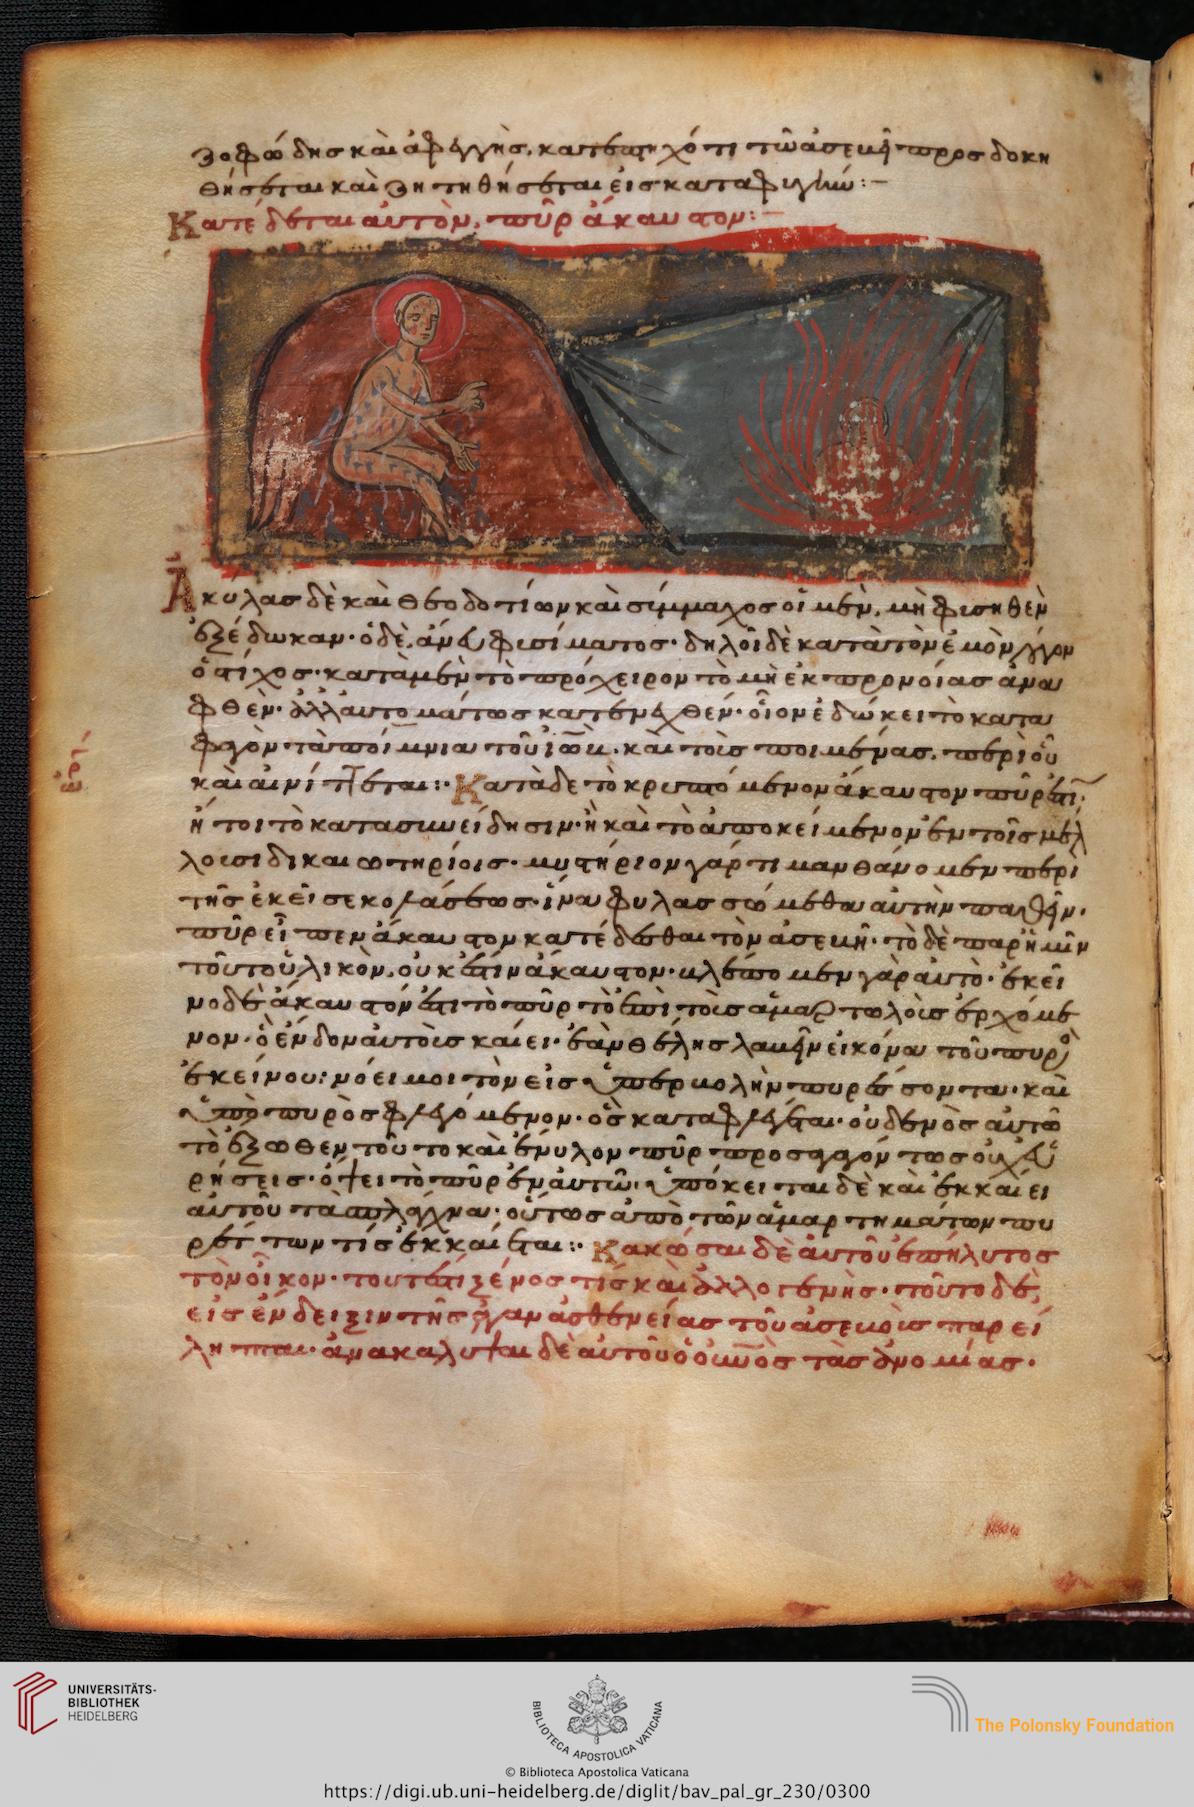 ζοφώδης καὶ ἀφεγγὴς. κατέστη χότι τῶ ἀσεβῆ προσδοκη
θήσεται καὶ ζητηθήσεται εἰς καταφυγὴν:–
Κατέδεται ἀυτὸν. πῦρ ἄκαυστον:–
Ἀκυλας δὲ καὶ Θεοδοτίων καὶ σύμμαχος οἱ μὲν. μὴ φυσηθὲν
ἐξέδωκαν· ὁ δὲ. ἄνευ φυσίματος· δηλοῖ δὲ κατὰ τὸν ἐμὸν λόγον
ὁ στίχος· κατὰ μὲν τὸ πρόχειρον τὸ μὴ ἐκ προνοίας ἀνα
φθὲν· ἀλλ αυτομάτως κατενεχθέν· οἷον ἐδώκει τὸ κατα
φλεγὸν τὰ ποίμνια τοῦ ἰὼβ. καὶ τοὺς ποιμένας. περὶ οὗ
καὶ αινίττεται:· Κατὰ δε τὸ κρυπτόμενον ἄκαυστον πῦρ ἐστι·
ἤτοι τὸ κατὰ συνείδησιν· ἢ καὶ τὸ ἀποκείμενον ἐν τοῖς μελ
λουσι δικαιωτηρίοις· μυστήριον γάρ τι μανθάνομεν περι
τῆς ἐκεῖσε κολάσεως· ἵνα φυλασσώμεθα ἀυτὴν παθεῖν·
πῦρ εἶπεν ἄκαυστον κατέδεσθαι τὸν ἀσεβῆ· τὸ δὲ παρ ἡμῖν
τοῦτο ὑλικὸν. ουκ ἔστιν ἄκαυστον· βλέπομεν γὰρ αυτὸ· ἐκεῖ
νο δὲ ἄκαυστόν ἐστι τὸ πῦρ τὸ ἐπὶ τοὺς ἁμαρτωλοὺς ἐρχόμε
νον· ὃ ἔνδον ἀυτοὺς καίει· ἐὰν θέλης λαβεῖν εἰκόνα τοῦ πυρὸς
ἐκείνου: νόει μοι τὸν εἰς ὑπερβολὴν πυρέσσοντα· καὶ
ὑπὸ πυρὸς φλεγόμενον· ὃς καταφλέγεται· ουδενὸς αυτῶ
τὸ ἔξωθεν τοῦτο καὶ ἔνυλον πῦρ προσαγαγόντος οὐχ εὑ
ρήσεις· ὄψει τὸ πῦρ ἐν ἀυτῶ· ὑπόκειται δὲ καὶ ἐκκαίει
αὐτοῦ τὰ σπλάγχνα· οὕτως ἀπὸ τῶν ἁμαρτημάτων πυ
ρέττων τίς ἐκκαίεται:· Κακώσαι δὲ ἀυτοῦ ἐπήλυτος
τὸν οἶκον· τουτέστι ξένος τίς καὶ ἀλλογενὴς· τοῦτο δὲ
εἰς ἔνδειξιν τῆς ἄγαν ἀσθενείας τοῦ ἀσεβοῦς παρεί
ληπται· ἀνακαλύψαι δὲ αὐτοῦ ὁ οὐνὸς τὰς ἀνομίας·
UNIVERSITÄTS-
BIBLIOTHEK
HEIDELBERG
BIBLIOTECA APOSTOLICA VATICANA
The Polonsky Foundation
© Biblioteca Apostolica Vaticana
https://digi.ub.uni-heidelberg.de/diglit/bav_pal_gr_230/0300